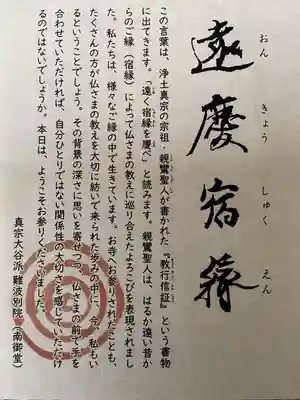 遠慶宿縁
おん きょう しゅく えん
この言葉は、浄土真宗の宗祖・親鸞聖人が書かれた『教行信証』という書物
に出てきます。「遠く宿縁を慶べ」と読みます。親鸞聖人は、はるか遠い昔か
らのご縁（宿縁）によって仏さまの教えに巡り合えたよろこびを表現されまし
た。私たちは、様々なご縁の中で生きています。お寺へお参りされたことも、
たくさんの方が仏さまの教えを大切に紡いで来られた歩みの中に、今、私もい
るということです。その背景の深さに思いを寄せつつ、仏さまの前で手を
合わせていただければ、自分ひとりではない関係性の大切さを感じていただけ
るのではないでしょうか。本日は、ようこそお参りくださいました。
真宗大谷派 難波別院（南御堂）